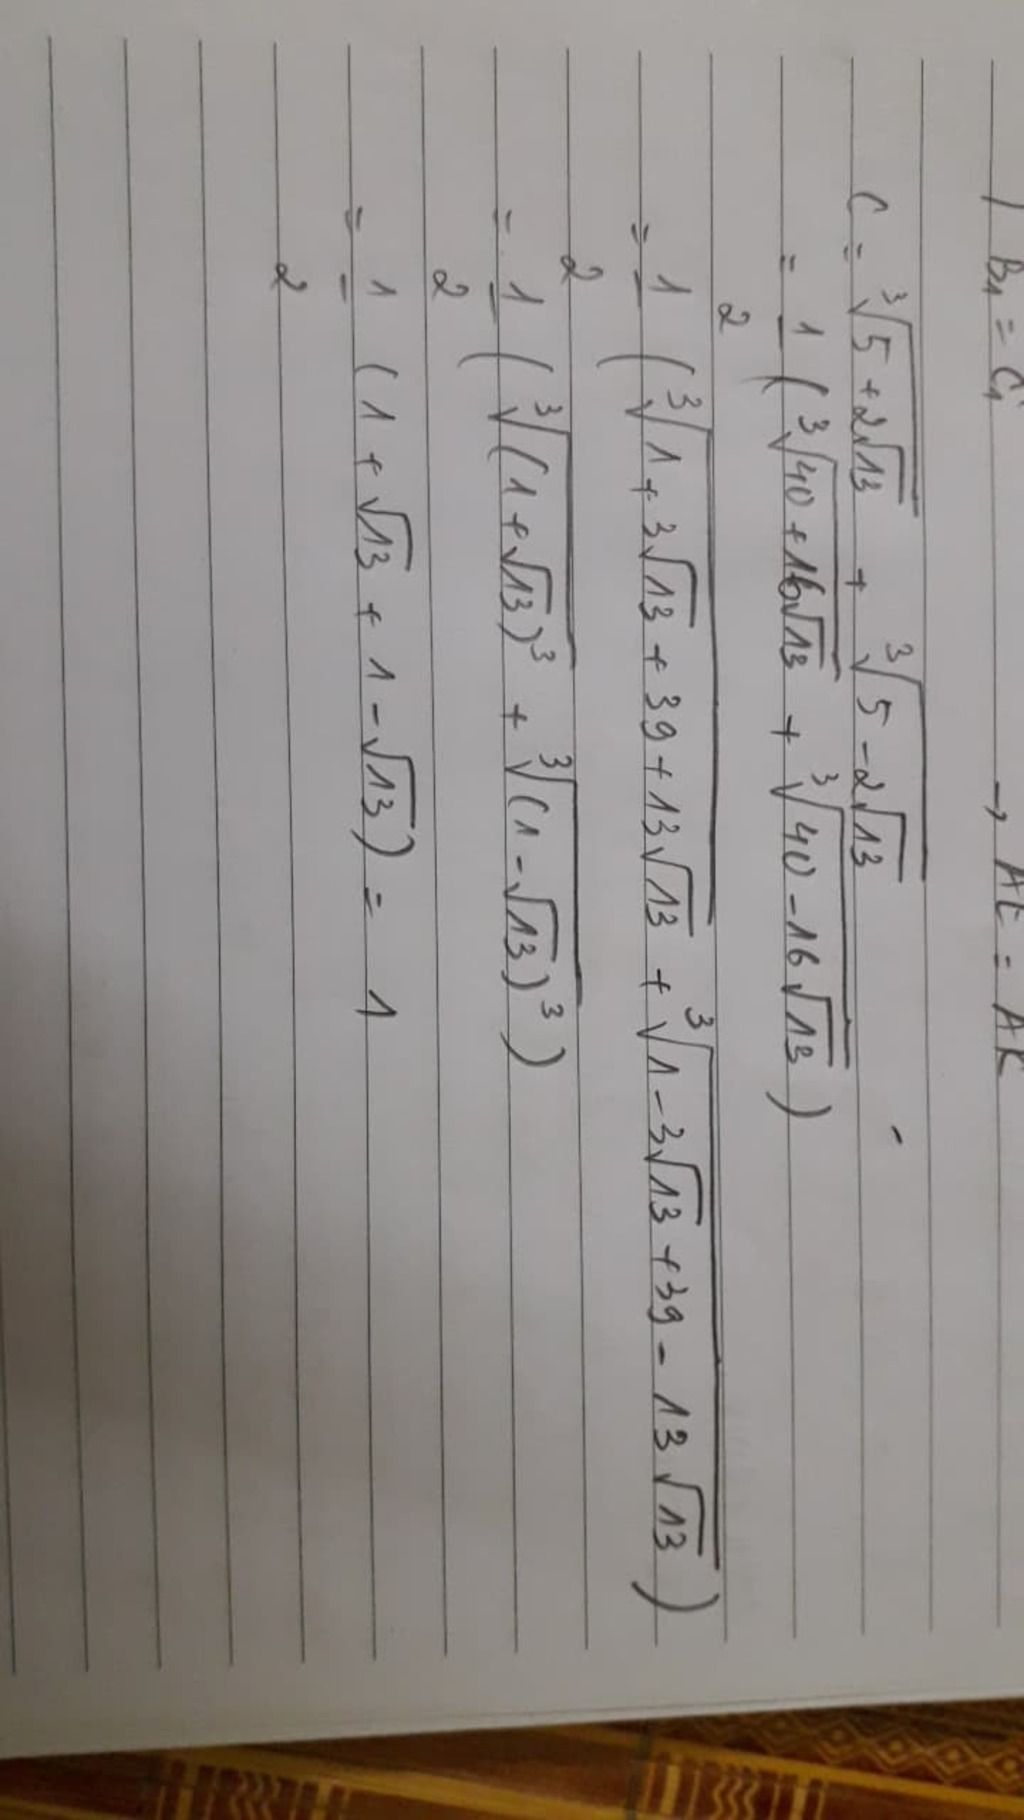 B₁ = C₁ → AE = AK
C = ∛(5 + 2√13) + ∛(5 - 2√13)
= 1/2 (∛(40 + 16√13) + ∛(40 - 16√13))
= 1/2 (∛(1 + 3√13 + 39 + 13√13) + ∛(1 - 3√13 + 39 - 13√13))
= 1/2 (∛((1 + √13)³) + ∛((1 - √13)³))
= 1/2 (1 + √13 + 1 - √13) = 1